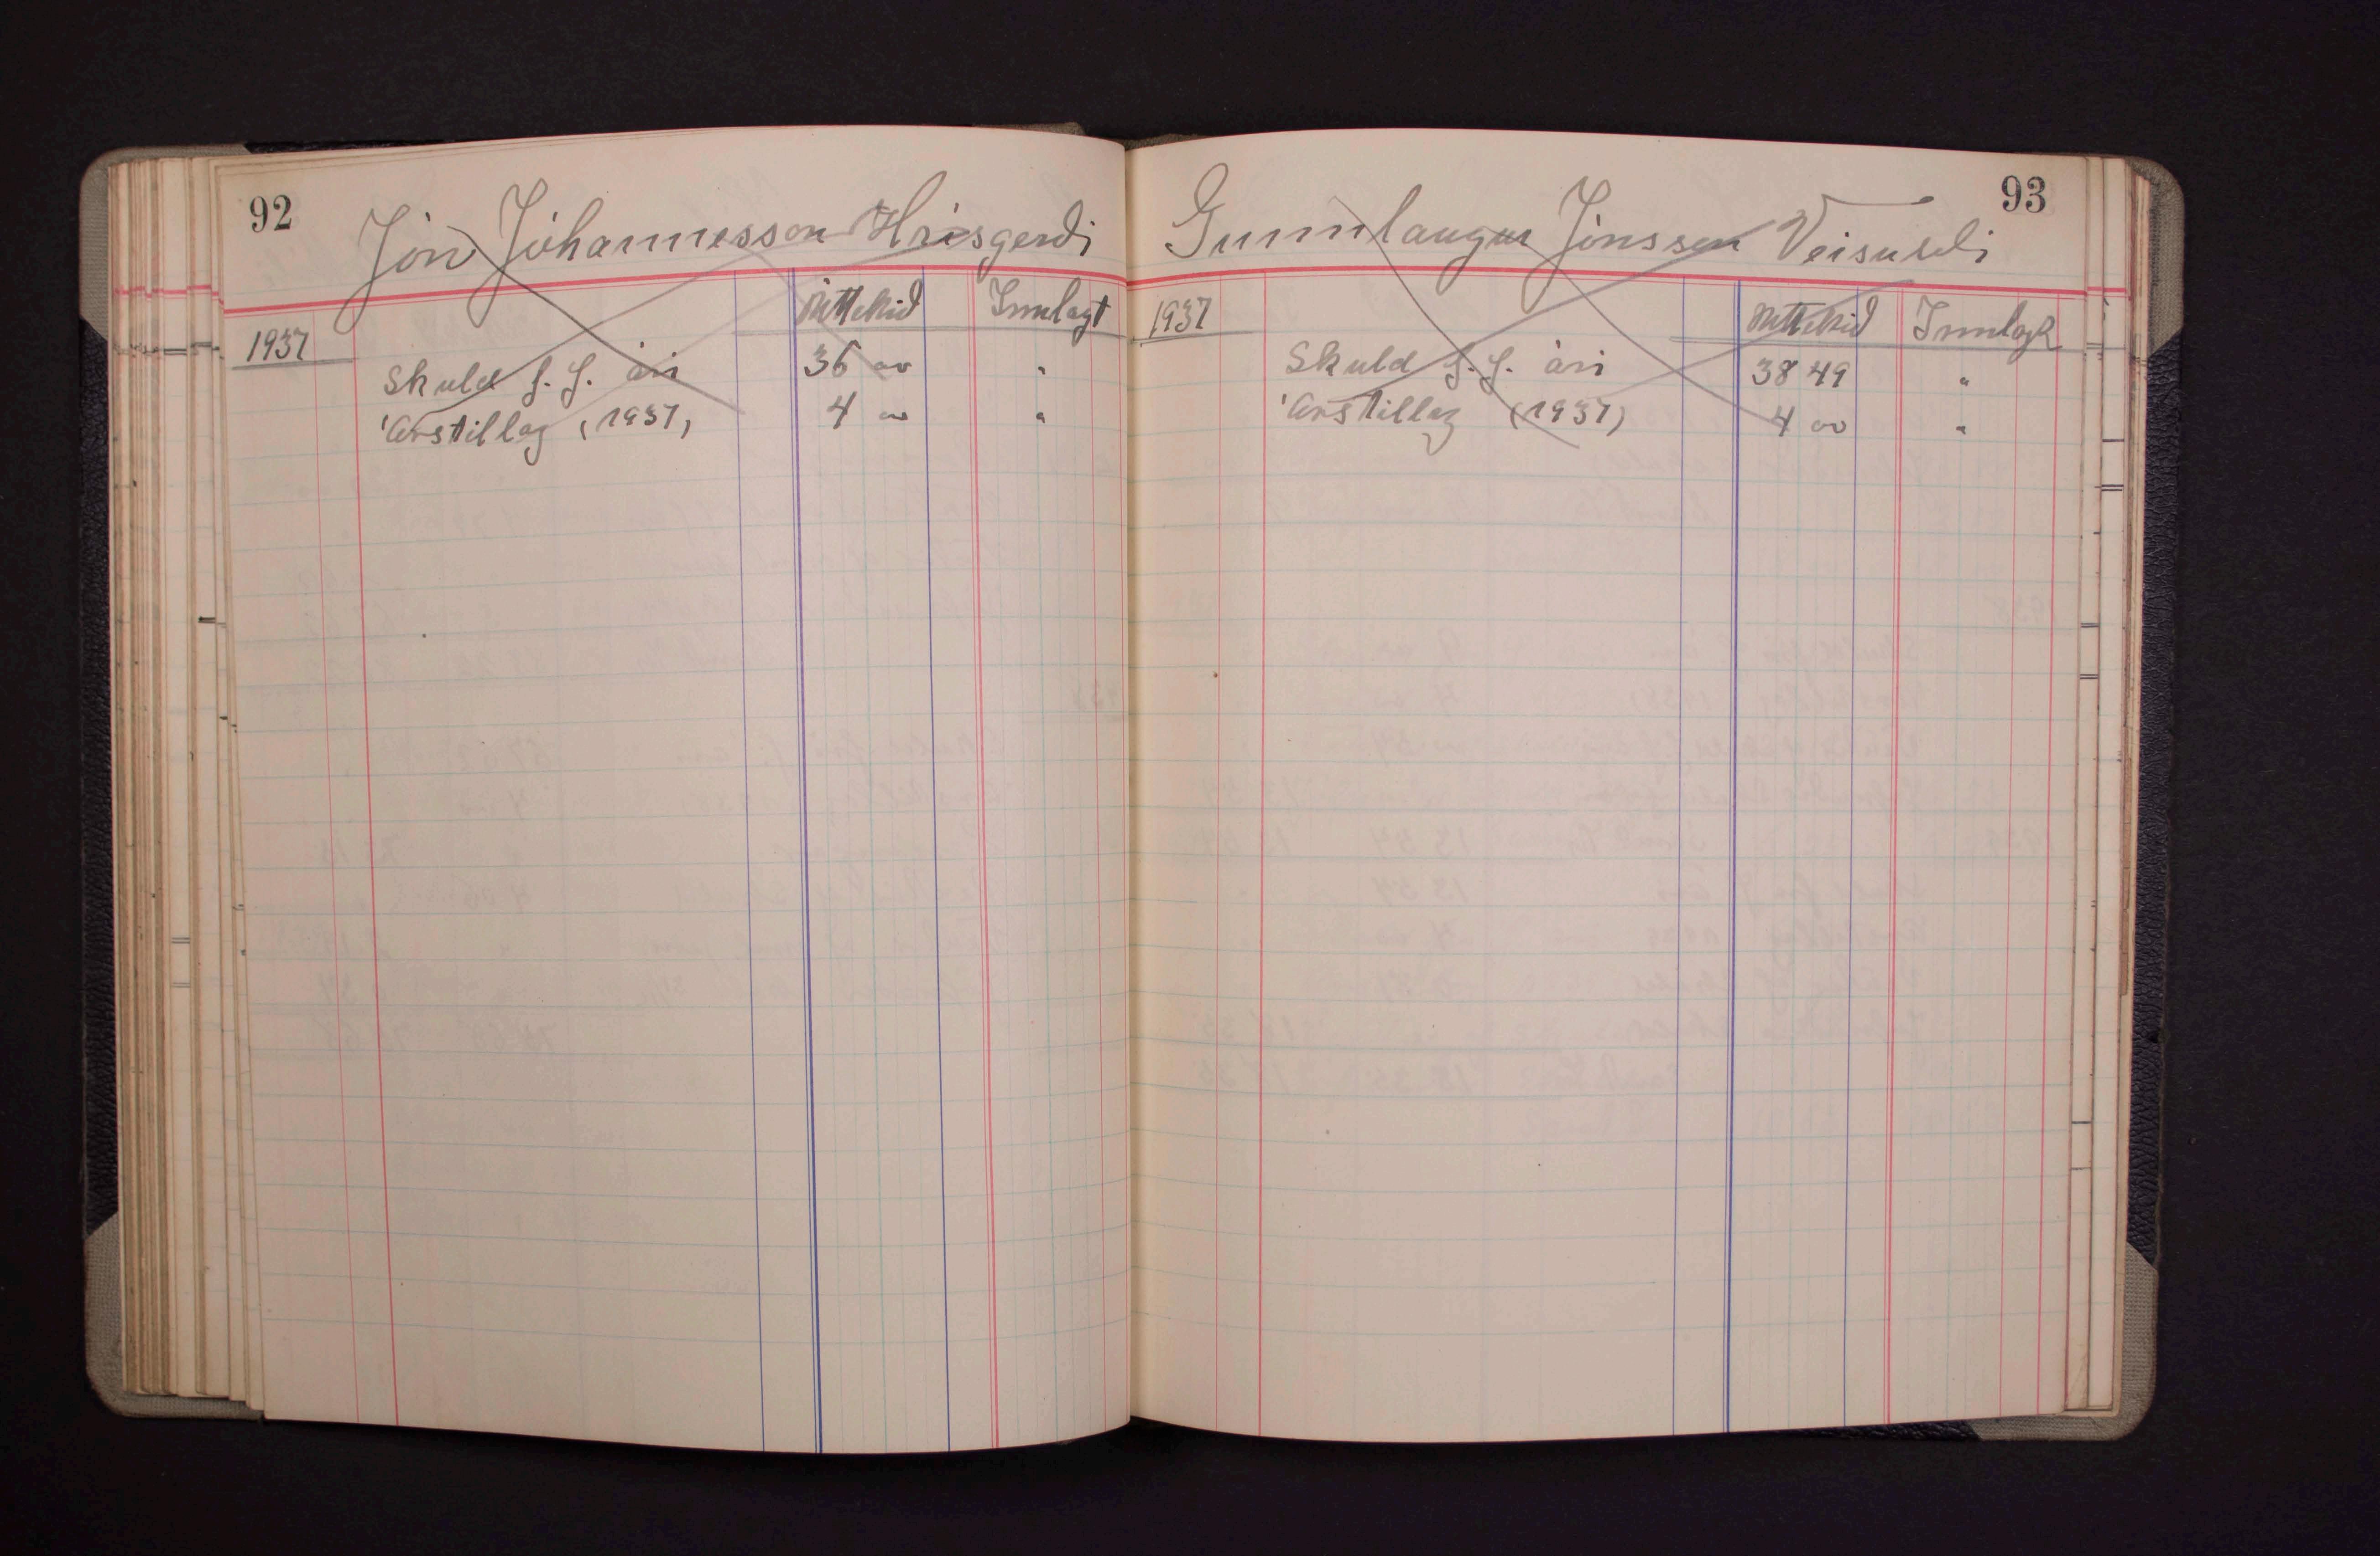 92
Jón Jóhannesson Hrísgerdi
Úttekid Innlagt
1937
Skuld f. f. ári 36 00 "
Árstillag (1937) 4 00 "
93
Gunnlaugur Jónsson Veisuseli
1937 Úttekid Innlagt
Skuld f. f. ári 38 49 "
Árstillag (1937) 4 00 "